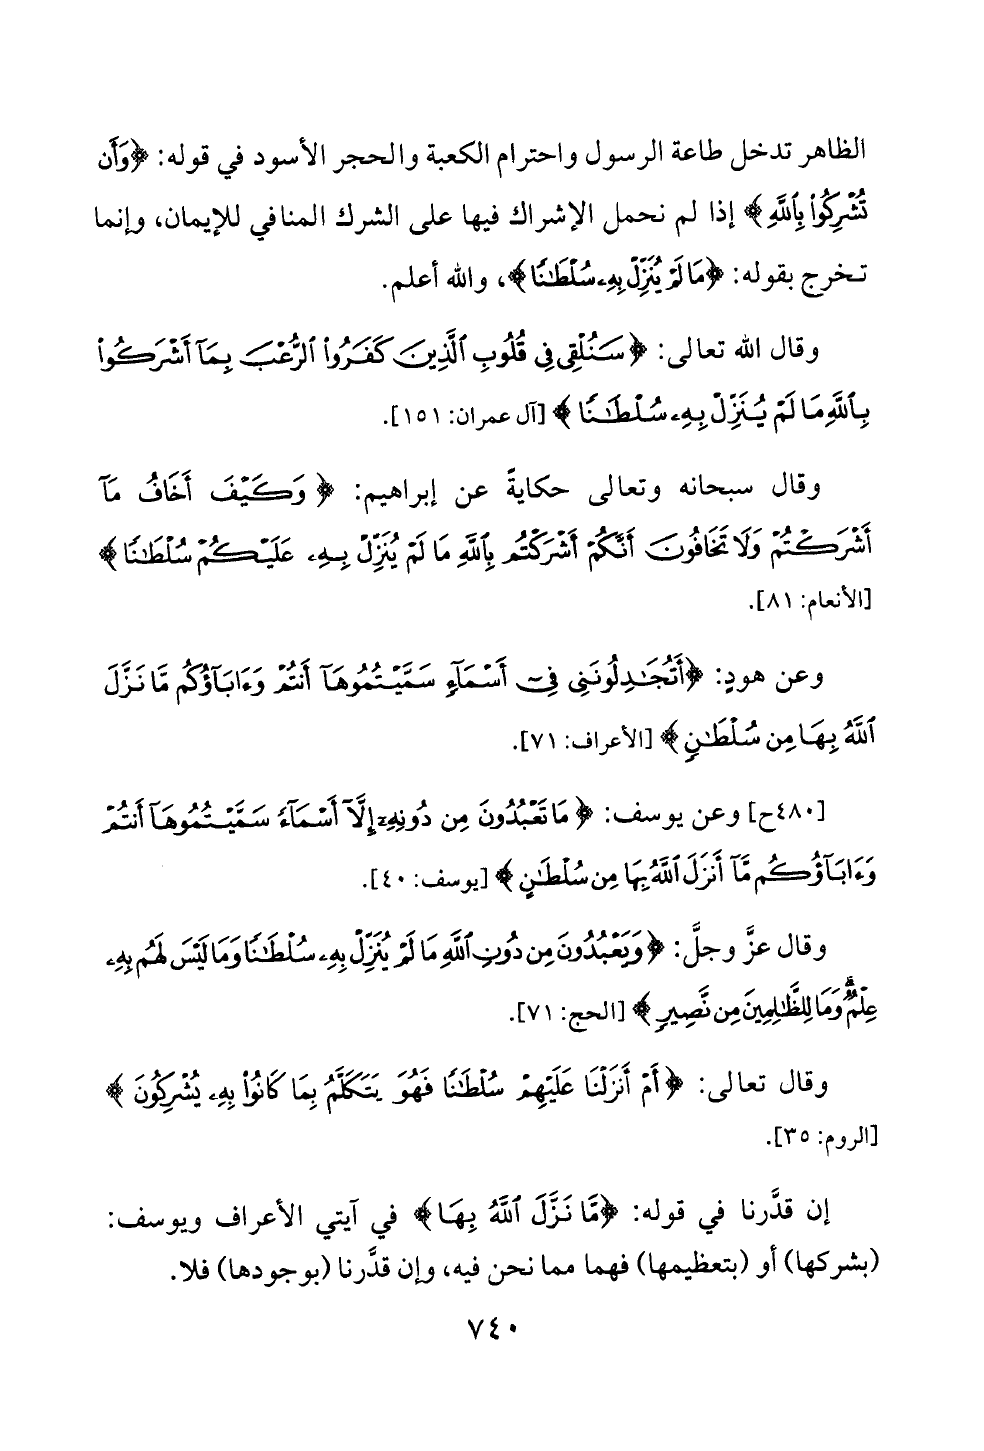 الظاهر تدخل طاعة الرسول واحترام الكعبة والحجر الأسود في قوله: ﴿وَأَن
تُشْرِكُواْ بِٱللَّهِ﴾ إذا لم نحمل الإشراك فيها على الشرك المنافي للإيمان، وإنما
تخرج بقوله: ﴿مَا لَمْ يُنَزِّلْ بِهِۦ سُلْطَٰنًا﴾، والله أعلم.
وقال الله تعالى: ﴿سَنُلْقِى فِى قُلُوبِ ٱلَّذِينَ كَفَرُواْ ٱلرُّعْبَ بِمَآ أَشْرَكُواْ
بِٱللَّهِ مَا لَمْ يُنَزِّلْ بِهِۦ سُلْطَٰنًا﴾ [آل عمران: ١٥١].
وقال سبحانه وتعالى حكايةً عن إبراهيم: ﴿وَكَيْفَ أَخَافُ مَآ
أَشْرَكْتُمْ وَلَا تَخَافُونَ أَنَّكُمْ أَشْرَكْتُم بِٱللَّهِ مَا لَمْ يُنَزِّلْ بِهِۦ عَلَيْكُمْ سُلْطَٰنًا﴾
[الأنعام: ٨١].
وعن هودٍ: ﴿أَتُجَٰدِلُونَنِى فِىٓ أَسْمَآءٍ سَمَّيْتُمُوهَآ أَنتُمْ وَءَابَآؤُكُم مَّا نَزَّلَ
ٱللَّهُ بِهَا مِن سُلْطَٰنٍ﴾ [الأعراف: ٧١].
[٤٨٠ح] وعن يوسف: ﴿مَا تَعْبُدُونَ مِن دُونِهِۦٓ إِلَّآ أَسْمَآءً سَمَّيْتُمُوهَآ أَنتُمْ
وَءَابَآؤُكُم مَّآ أَنزَلَ ٱللَّهُ بِهَا مِن سُلْطَٰنٍ﴾ [يوسف: ٤٠].
وقال عزَّ وجلَّ: ﴿وَيَعْبُدُونَ مِن دُونِ ٱللَّهِ مَا لَمْ يُنَزِّلْ بِهِۦ سُلْطَٰنًا وَمَا لَيْسَ لَهُم بِهِۦ
عِلْمٌۗ وَمَا لِلظَّٰلِمِينَ مِن نَّصِيرٍ﴾ [الحج: ٧١].
وقال تعالى: ﴿أَمْ أَنزَلْنَا عَلَيْهِمْ سُلْطَٰنًا فَهُوَ يَتَكَلَّمُ بِمَا كَانُواْ بِهِۦ يُشْرِكُونَ﴾
[الروم: ٣٥].
إن قدَّرنا في قوله: ﴿مَّا نَزَّلَ ٱللَّهُ بِهَا﴾ في آيتي الأعراف ويوسف:
(بشركها) أو (بتعظيمها) فهما مما نحن فيه، وإن قدَّرنا (بوجودها) فلا.
٧٤٠